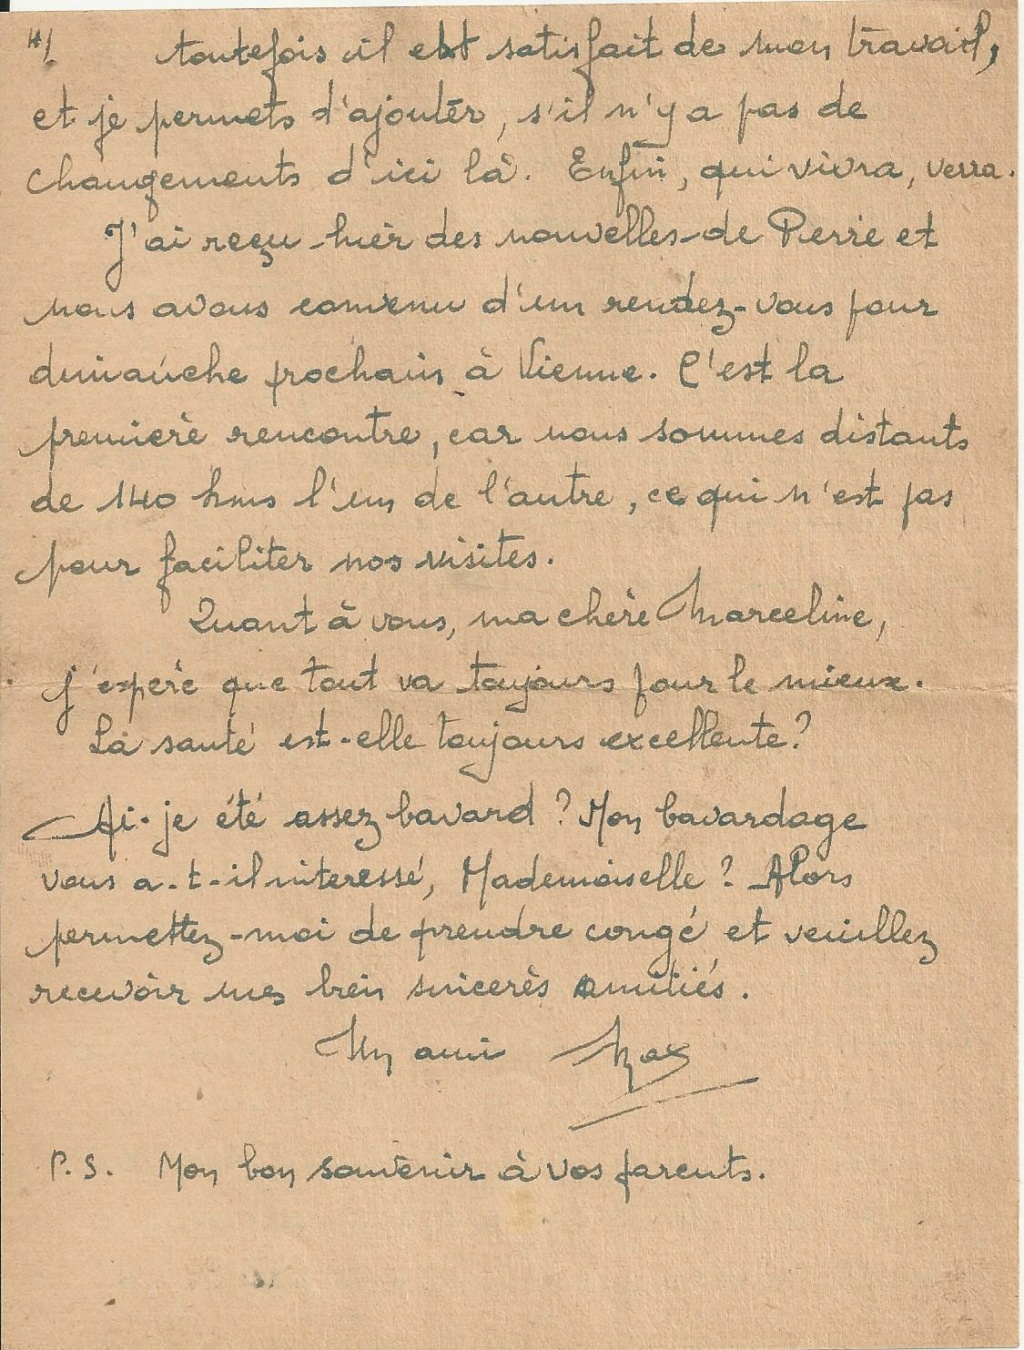 4/ toutefois il est satisfait de mon travail,
et je permets d'ajouter, s'il n'y a pas de
changements d'ici là. Enfin, qui vivra, verra.
J'ai reçu hier des nouvelles de Pierre et
nous avons convenu d'un rendez-vous pour
dimanche prochain à Vienne. C'est la
première rencontre, car nous sommes distants
de 140 kms l'un de l'autre, ce qui n'est pas
pour faciliter nos visites.
Quant à vous, ma chère Marceline,
j'espère que tout va toujours pour le mieux.
La santé est-elle toujours excellente?
Ai-je été assez bavard? Mon bavardage
vous a-t-il interessé, Mademoiselle? Alors
permettez-moi de prendre congé et veuillez
recevoir mes bien sincerès amitiés.
Un ami Max
P.S. Mon bon souvenir à vos parents.